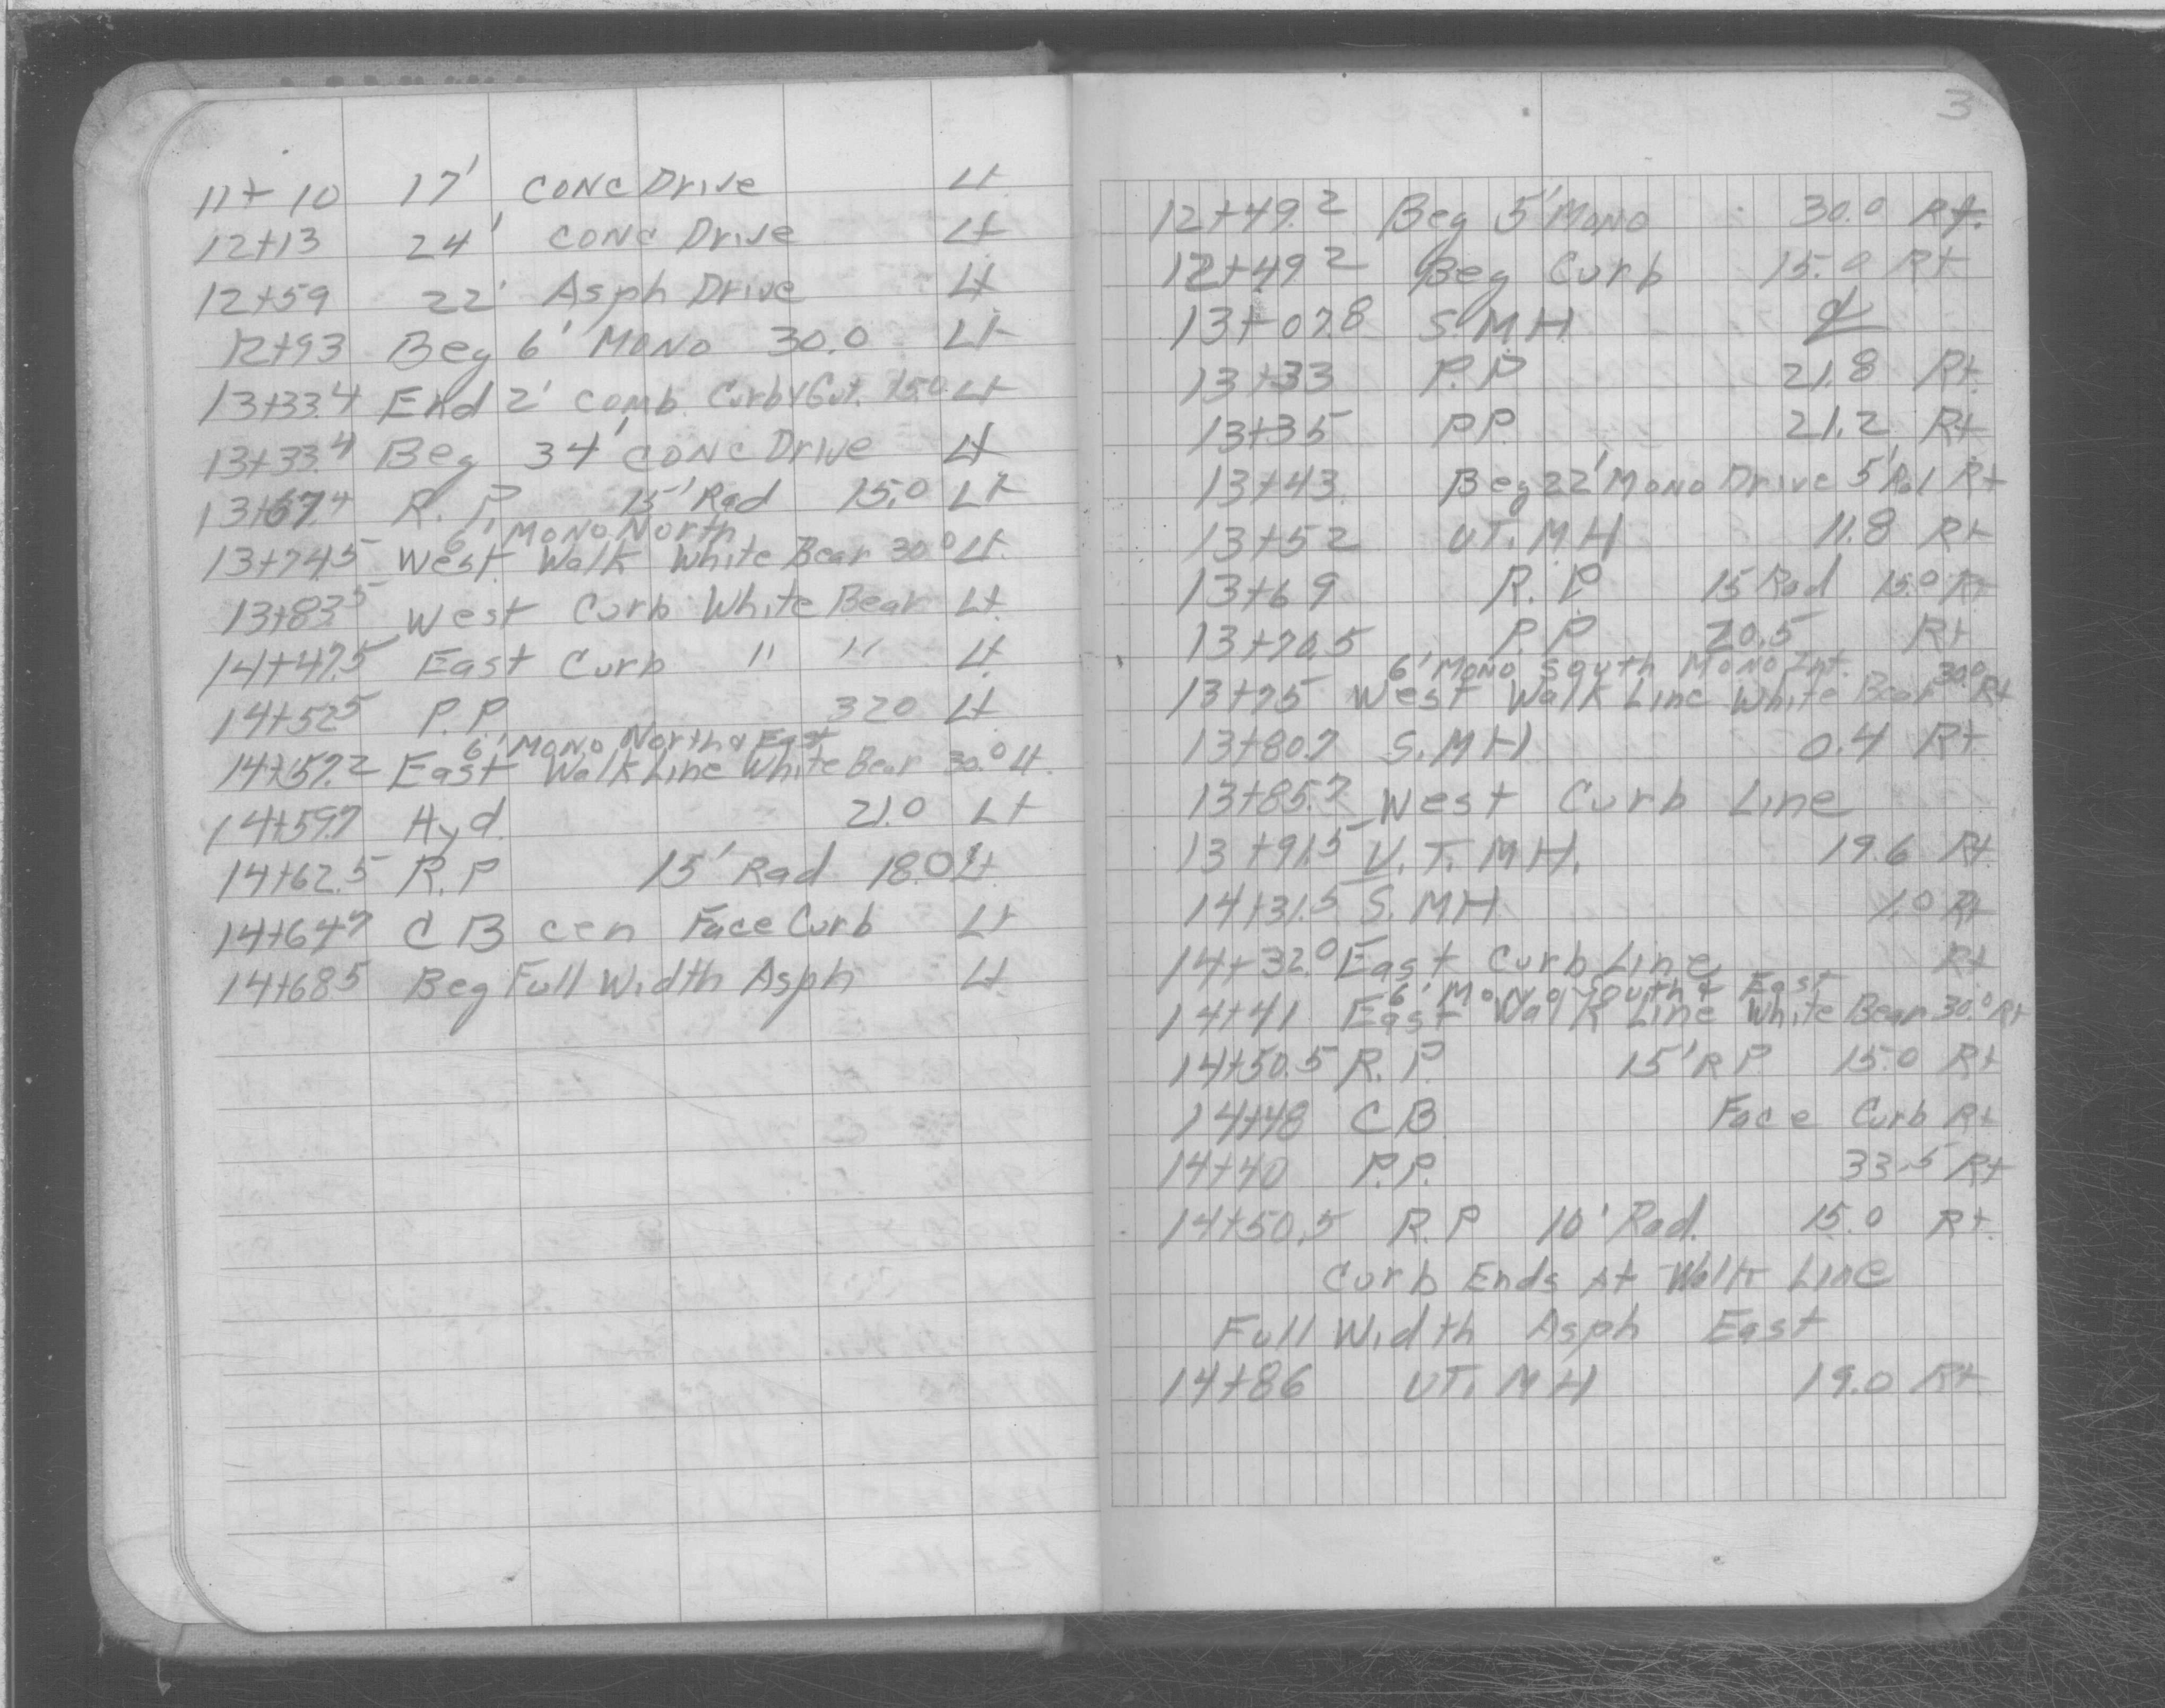 11+10 17' CONC Drive Lt
12+13 24' CONC Drive Lt
12+59 22' Asph Drive Lt
12+93 Beg 6' MONO 30.0 Lt
13+33.4 End 2' Comb. Curb & Gut. 15.0 Lt
13+33.4 Beg 34' CONC Drive Lt
13+67.4 R.P. 15' Rad 15.0 Lt
6' MONO North
13+74.5 West Walk White Bear 30.0 Lt
13+83.5 West Curb White Bear Lt
14+47.5 East Curb " " Lt
14+52.5 P.P. 32.0 Lt
6' MONO North & East
14+57.2 East Walk Line White Bear 30.0 Lt
14+59.7 Hyd. 21.0 Lt
14+62.5 R.P 15' Rad 18.0 Lt
14+64.7 CB cen Face Curb Lt
14+68.5 Beg Full Width Asph Lt
3
12+49.2 Beg 5' MONO 30.0 Rt.
12+49.2 Beg Curb 15.0 Rt
13+07.8 S.M.H ℄
13+33 P.P 21.8 Rt
13+35 P.P. 21.2 Rt
13+43 Beg 22' MONO Drive 5' Rad Rt
13+52 UT. MH 11.8 Rt
13+69 R.P 15 Rad 15.0 Rt
13+70.5 P.P 20.5 Rt
6' MONO South MONO Int.
13+75 West Walk Line White Bear 30.0 Rt
13+80.7 S.MH 0.4 Rt
13+85.7 West Curb Line
13+91.5 U.T. MH. 19.6 Rt
14+31.5 S.MH 1.0 Rt
14+32.0 East Curb Line Rt
6' Mono South & East
14+41 East Walk Line White Bear 30.0 Rt
14+50.5 R.P. 15' RP 15.0 Rt
14+48 CB Face Curb Rt
14+40 P.P. 33.5 Rt
14+50.5 R.P 10' Rad. 15.0 Rt.
Curb Ends At Walk Line
Full Width Asph East
14+86 UT. MH 19.0 Rt